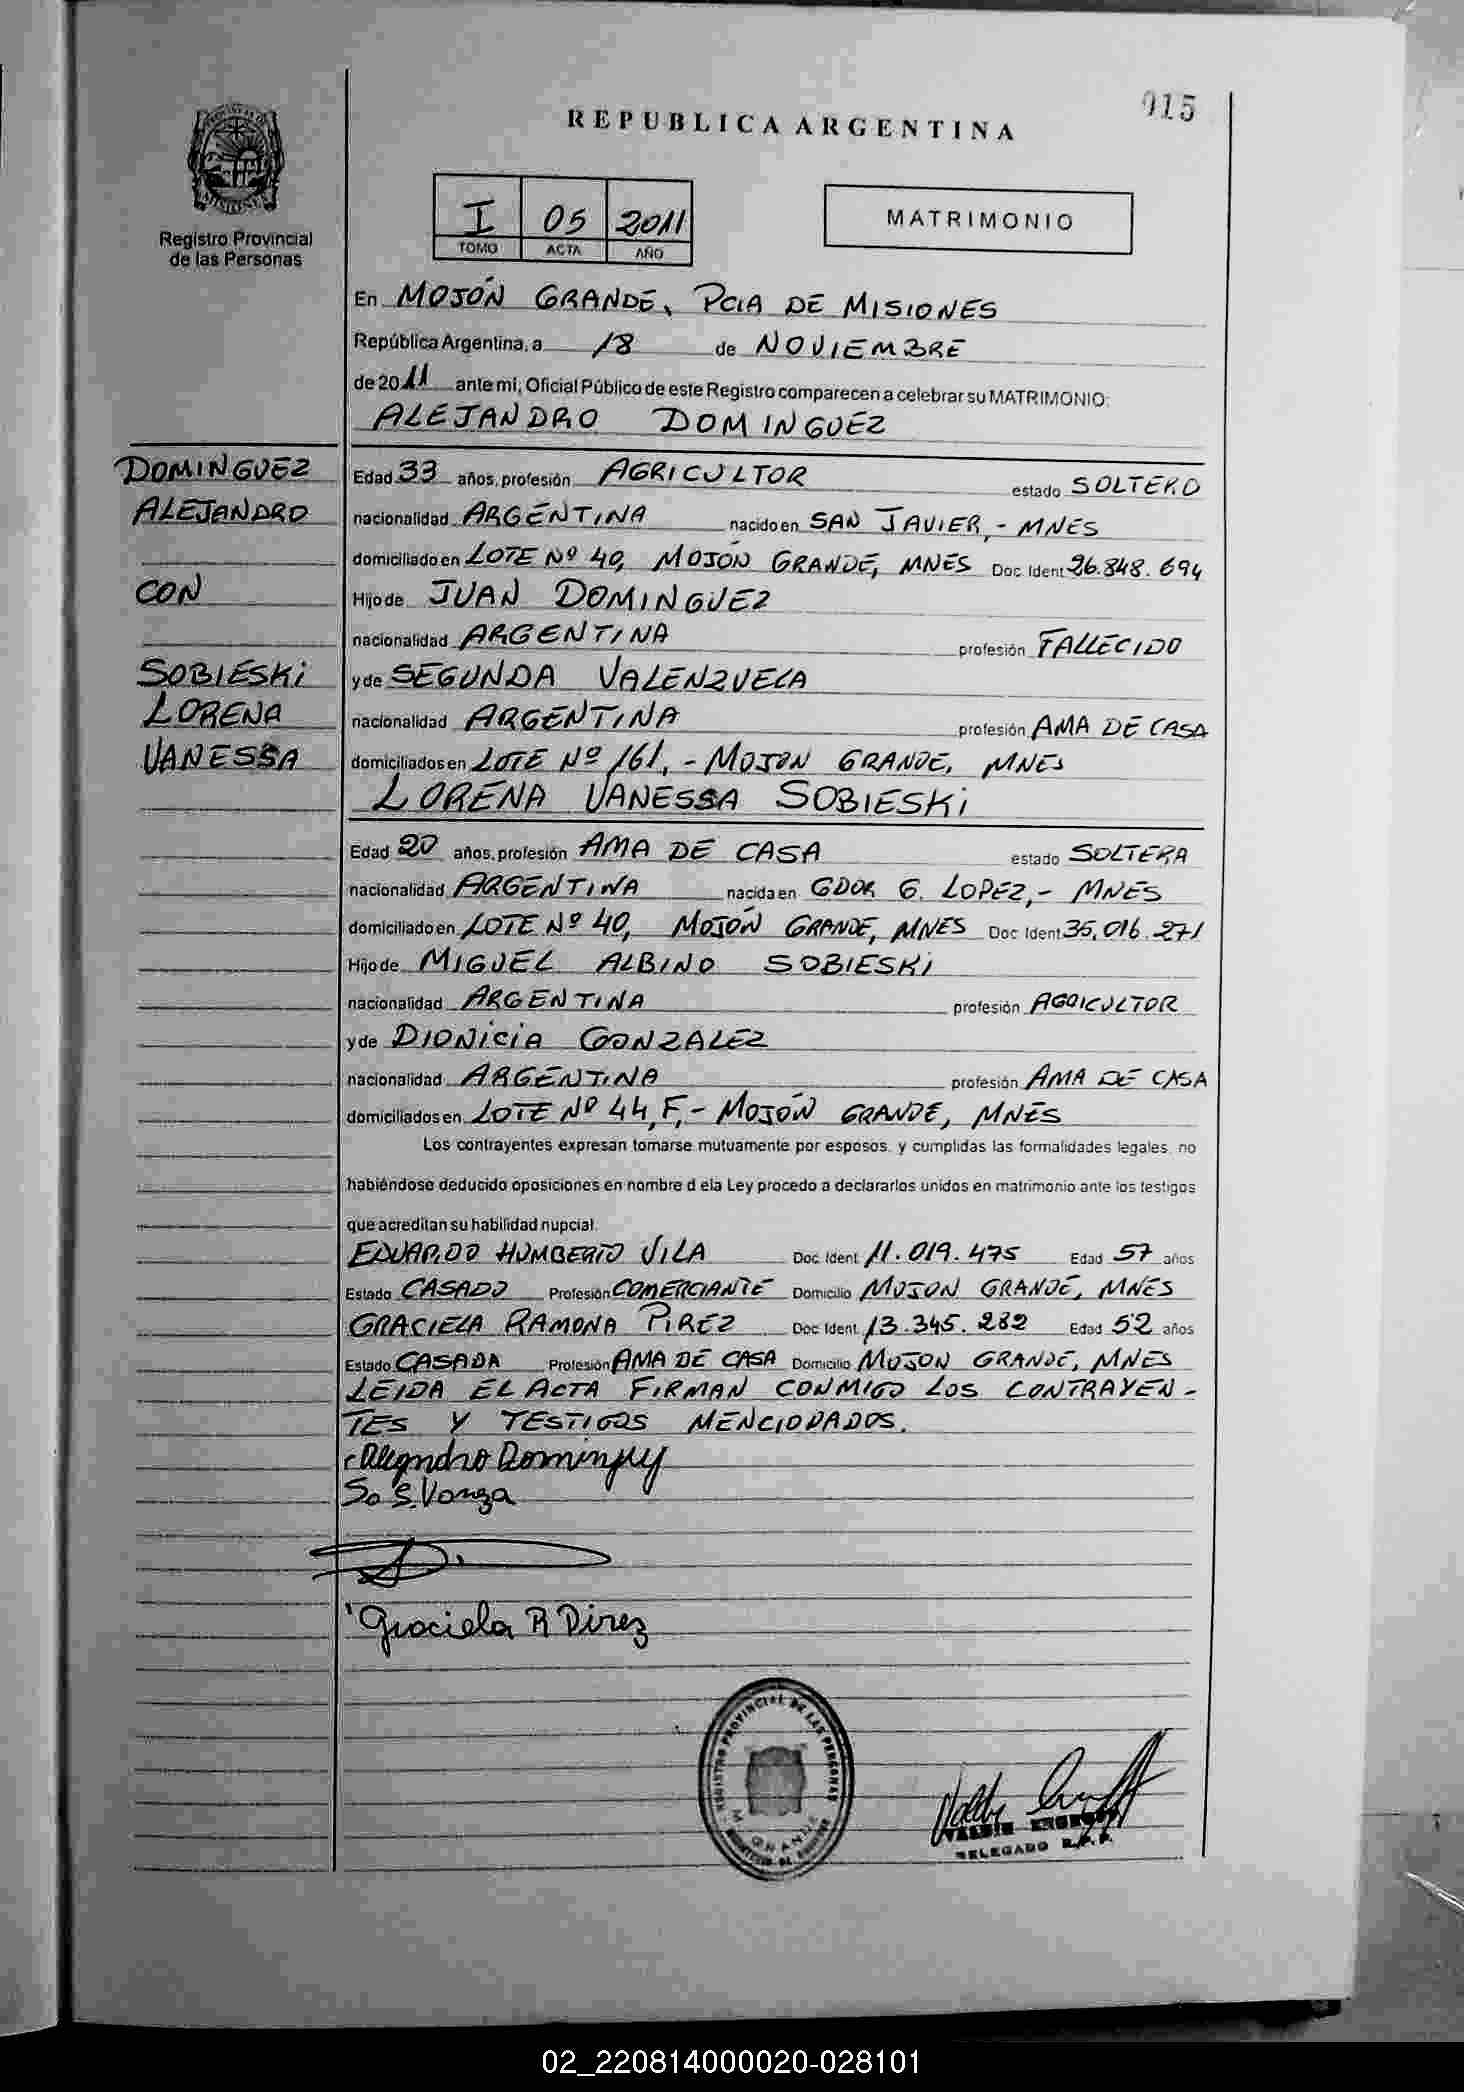 015
REPUBLICA ARGENTINA
Registro Provincial
de las Personas
I 05 2011
TOMO ACTA AÑO
MATRIMONIO
En MOJÓN GRANDE, PCIA DE MISIONES
República Argentina, a 18 de NOVIEMBRE
de 2011 ante mi, Oficial Público de este Registro comparecen a celebrar su MATRIMONIO:
ALEJANDRO DOMINGUEZ
DOMINGUEZ
ALEJANDRO
CON
SOBIESKI
LORENA
VANESSA
Edad 33 años, profesión AGRICULTOR estado SOLTERO
nacionalidad ARGENTINA nacido en SAN JAVIER,- MNES
domiciliado en LOTE Nº 40, MOJÓN GRANDE, MNES Doc Ident 26.848.694
Hijo de JUAN DOMINGUEZ
nacionalidad ARGENTINA profesión FALLECIDO
y de SEGUNDA VALENZUELA
nacionalidad ARGENTINA profesión AMA DE CASA
domiciliados en LOTE Nº 161,- MOJON GRANDE, MNES
LORENA VANESSA SOBIESKI
Edad 20 años, profesión AMA DE CASA estado SOLTERA
nacionalidad ARGENTINA nacida en GDOR G. LOPEZ,- MNES
domiciliado en LOTE Nº 40, MOJÓN GRANDE, MNES Doc Ident 35.016.271
Hijo de MIGUEL ALBINO SOBIESKI
nacionalidad ARGENTINA profesión AGRICULTOR
y de DIONICIA GONZALEZ
nacionalidad ARGENTINA profesión AMA DE CASA
domiciliados en LOTE Nº 44,F,- MOJÓN GRANDE, MNES
Los contrayentes expresan tomarse mutuamente por esposos, y cumplidas las formalidades legales, no
habiéndose deducido oposiciones en nombre d ela Ley procedo a declararlos unidos en matrimonio ante los testigos
que acreditan su habilidad nupcial.
EDUARDO HUMBERTO VILA Doc Ident 11.019.475 Edad 57 años
Estado CASADO Profesión COMERCIANTE Domicilio MOJON GRANDE, MNES
GRACIELA RAMONA PIREZ Doc Ident 13.345.282 Edad 52 años
Estado CASADA Profesión AMA DE CASA Domicilio MOJON GRANDE, MNES
LEIDA EL ACTA FIRMAN CONMIGO LOS CONTRAYEN-
TES Y TESTIGOS MENCIODADOS.
Alejandro Dominguez
Graciela R Pirez
REGISTRO PROVINCIAL DE LAS PERSONAS
DELEGADO R.P.P.
02_220814000020-028101